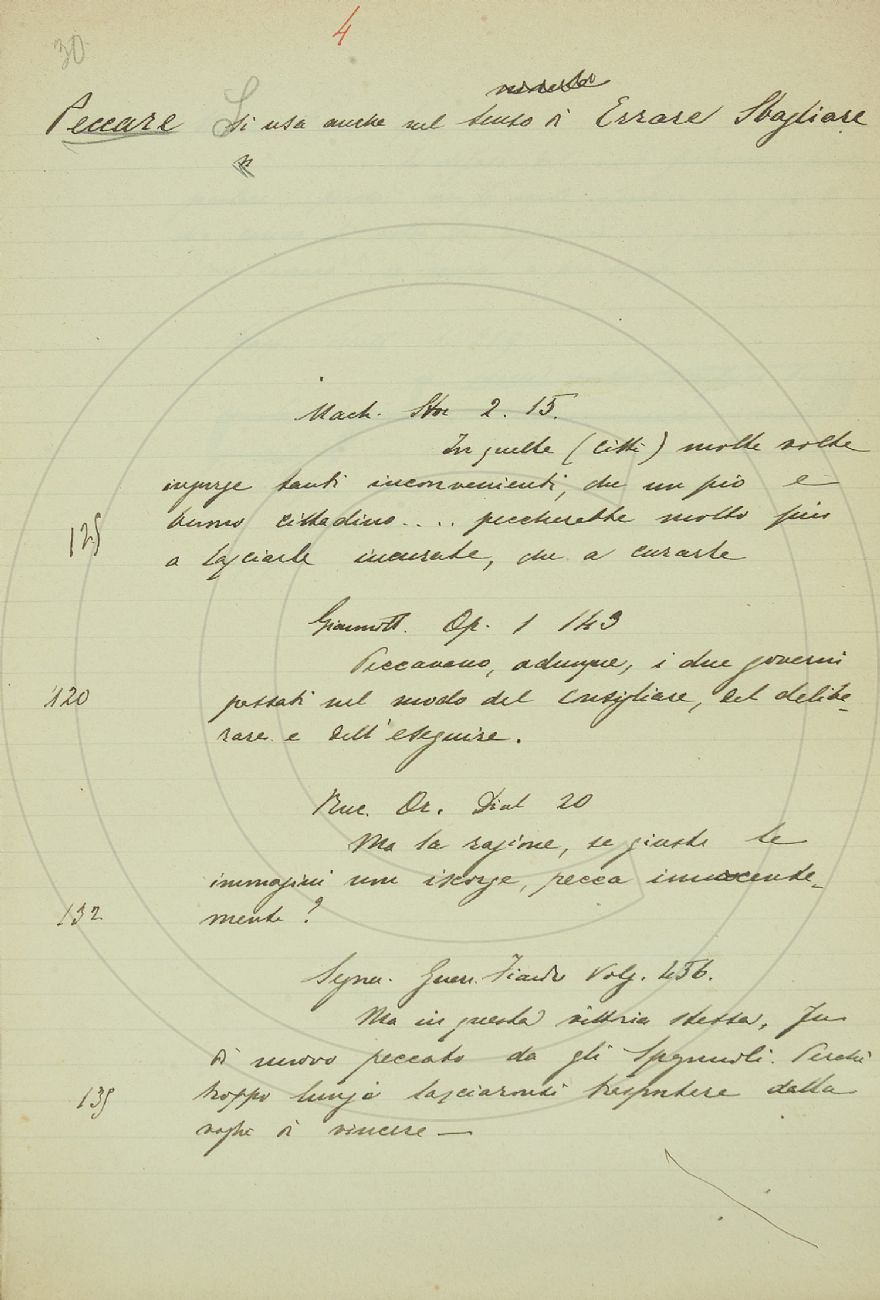 4
30
Peccare Si usa anche nel senso di Errare Sbagliare
Mach. Stor 2. 15.
In quelle (città) molte volte
insurge tanti inconvenienti, che un pio e
buono cittadino.... peccherebbe molto più
125
a lasciarle incurate, che a curarle
Giannott. Op. 1 143
Peccavano, adunque, i due governi
120
passati nel modo del consigliare, del delibe-
rare e dell'eseguire.
Ruc. Or. Dial 20
Ma la ragione, se giuste le
immagini non iscorge, pecca innocente-
132
mente?
Segner. Guerr. Fiandr Volg. 456.
Ma in questa vittoria stessa, fu
di nuovo peccato da gli Spagnuoli. Perchè
135
troppo lungi lasciaronsi trasportare dalla
voglia di vincere —